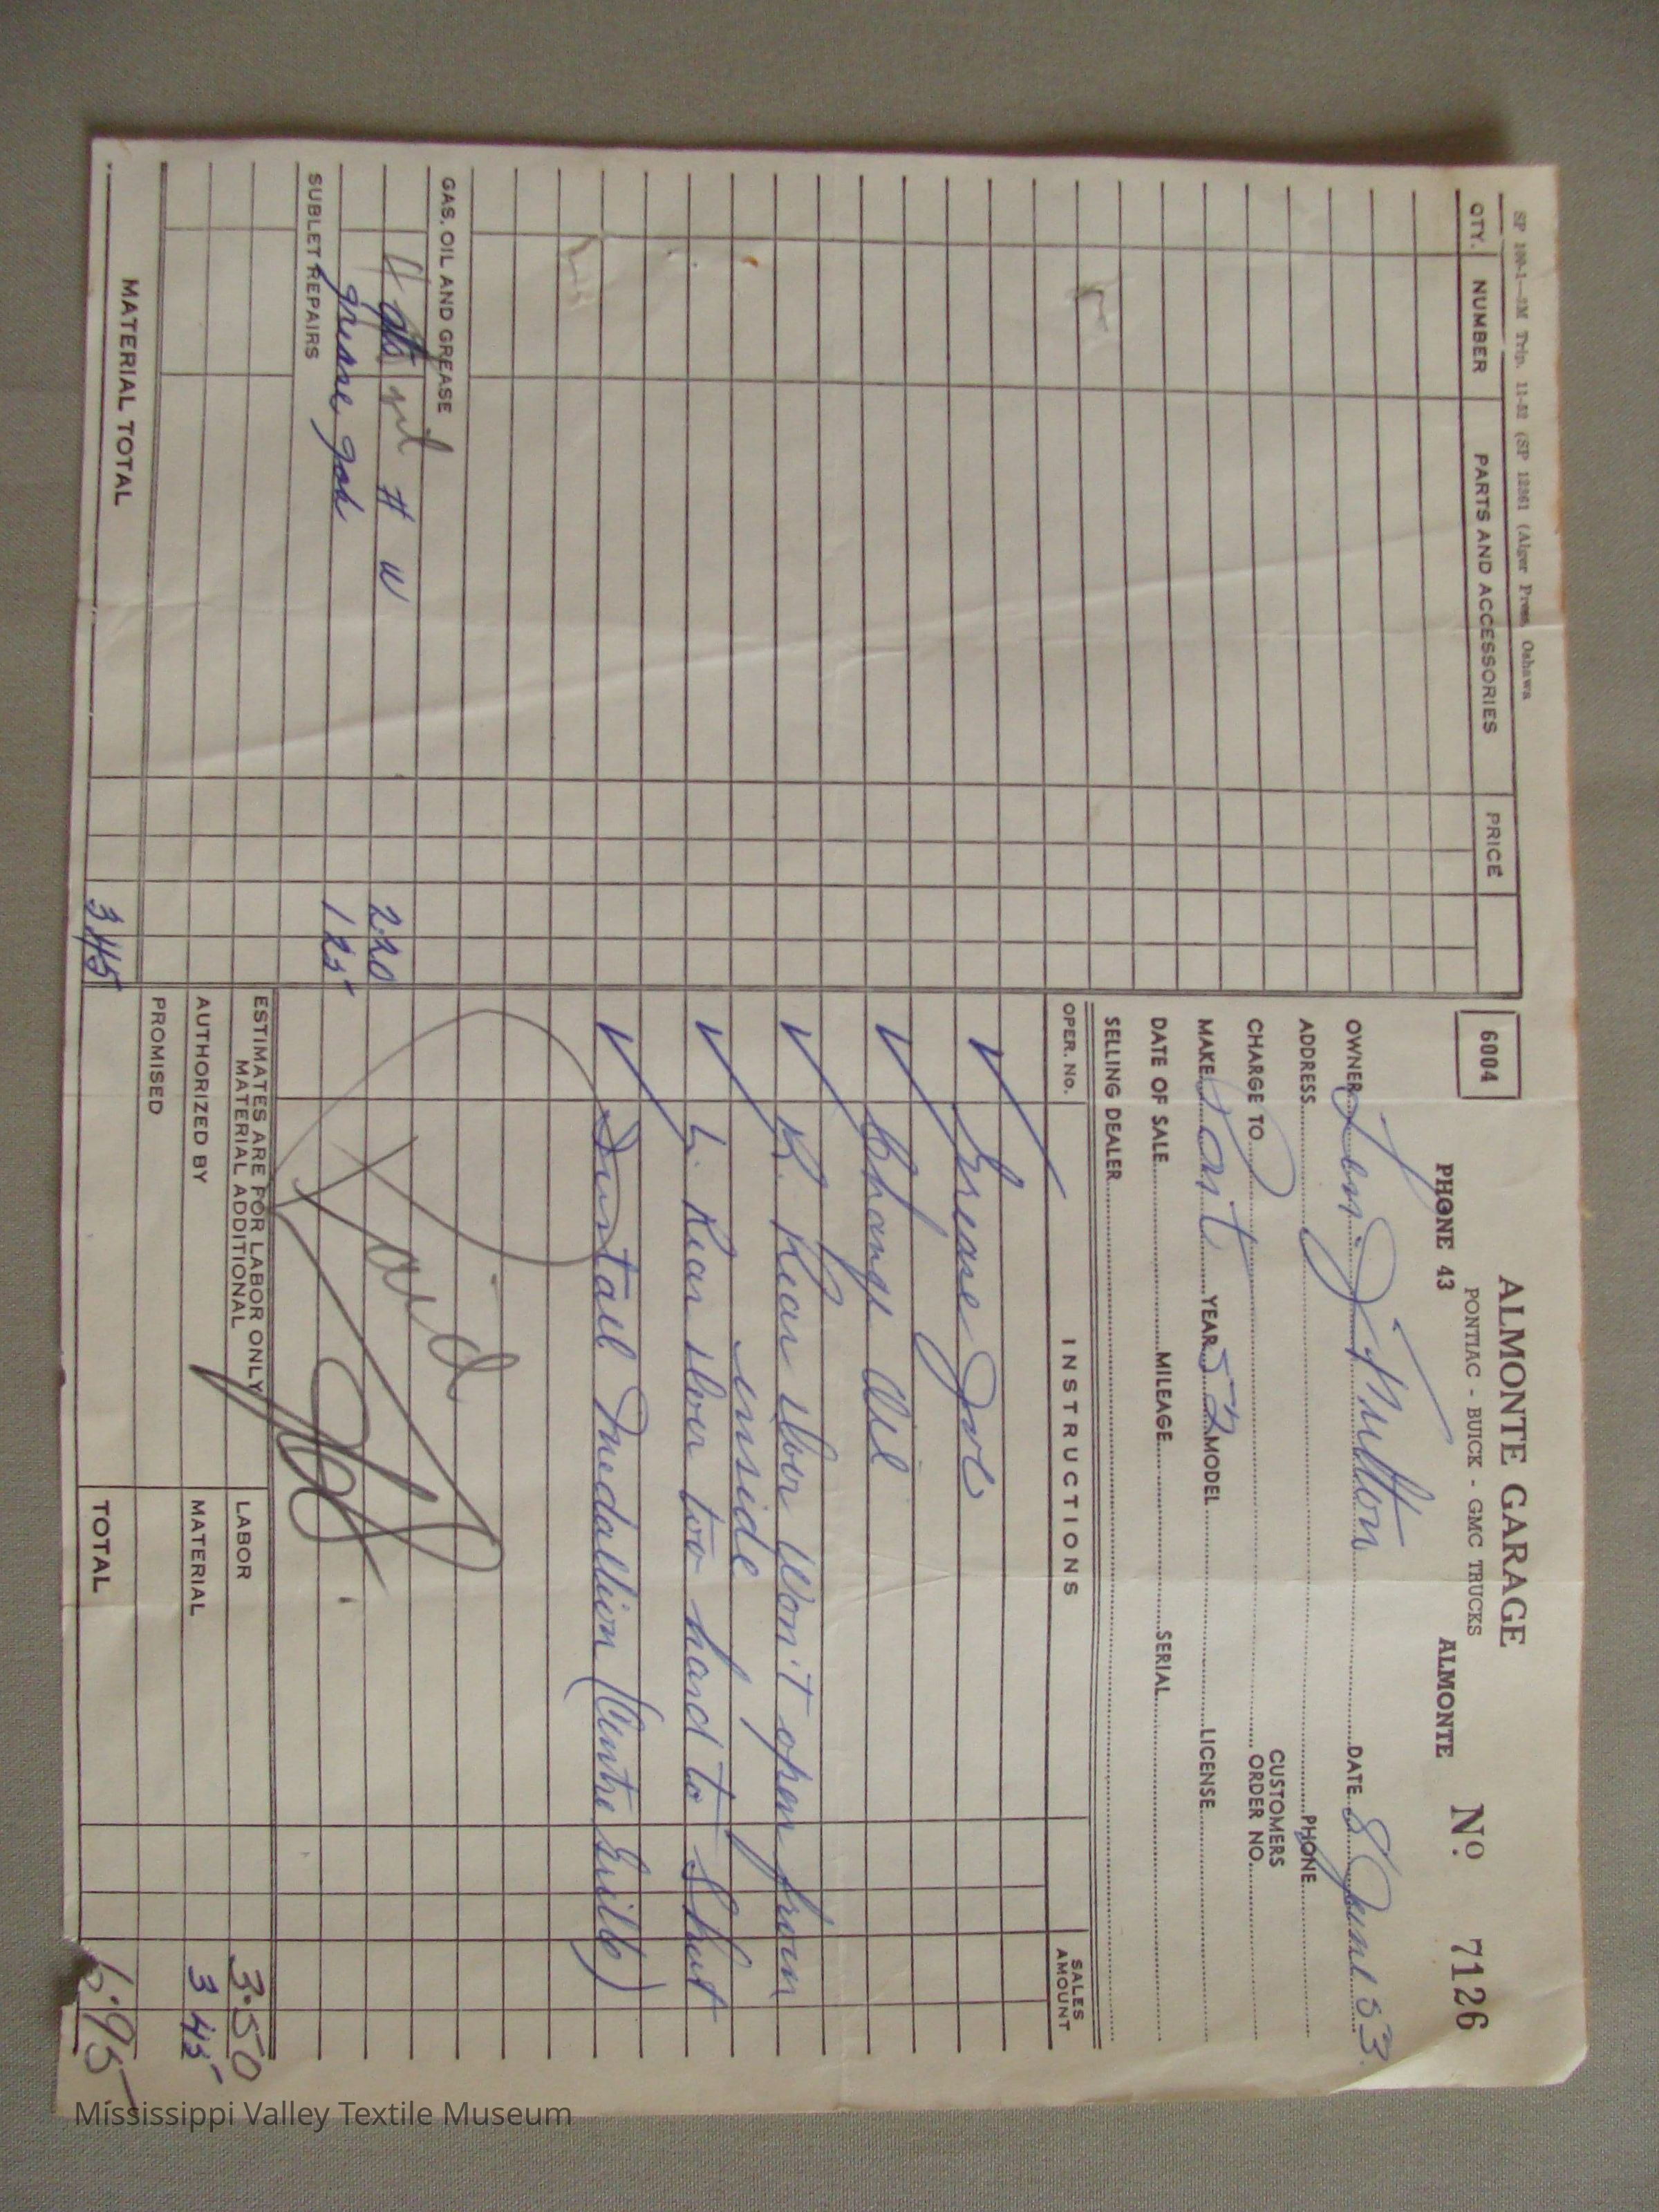 SP 100-1—3M Trip. 11-52 (SP 12361 (Alger Press, Oshawa
QTY. NUMBER PARTS AND ACCESSORIES PRICE
GAS, OIL AND GREASE
qts H W 220
grease job 125
SUBLET REPAIRS
MATERIAL TOTAL 345
ALMONTE GARAGE
6004 PONTIAC - BUICK - GMC TRUCKS No. 7126
PHONE 43 ALMONTE
OWNER DATE 8 June 53
ADDRESS PHONE
CHARGE TO CUSTOMERS ORDER NO.
MAKE Pont YEAR 53 MODEL LICENSE
DATE OF SALE MILEAGE SERIAL
SELLING DEALER
OPER. No. INSTRUCTIONS SALES AMOUNT
✓ Grease Job
✓ Change Oil
✓ R. Rear door won't open from
inside
✓ L. Rear door too hard to Shut
✓ Install Medallion (Centre Grille)
Paid
ESTIMATES ARE FOR LABOR ONLY
MATERIAL ADDITIONAL
LABOR 3.50
AUTHORIZED BY MATERIAL 3 45
PROMISED
TOTAL 6.95
Mississippi Valley Textile Museum